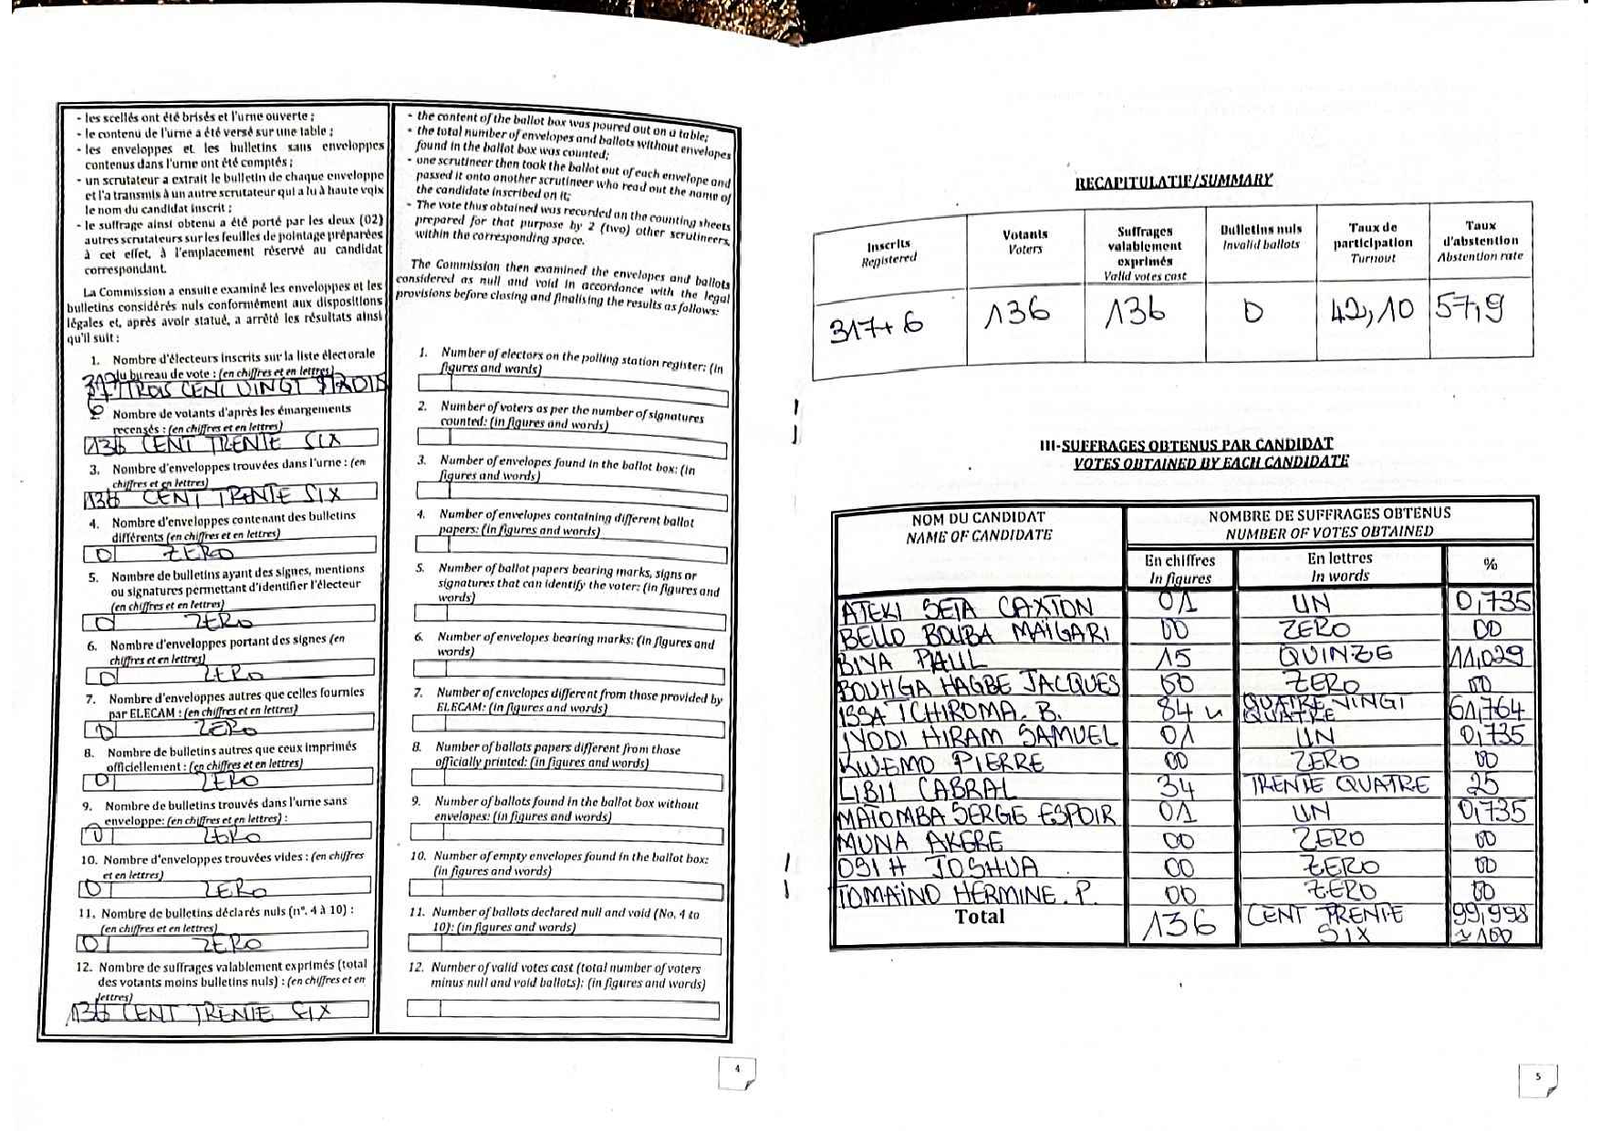 - les scellés ont été brisés et l'urne ouverte ;
- le contenu de l'urne a été versé sur une table ;
- les enveloppes et les bulletins sans enveloppes
contenus dans l'urne ont été comptés ;
- un scrutateur a extrait le bulletin de chaque enveloppe
et l'a transmis à un autre scrutateur qui a lu à haute voix
le nom du candidat inscrit ;
- le suffrage ainsi obtenu a été porté par les deux (02)
autres scrutateurs sur les feuilles de pointage préparées
à cet effet, à l'emplacement réservé au candidat
correspondant.
La Commission a ensuite examiné les enveloppes et les
bulletins considérés nuls conformément aux dispositions
légales et, après avoir statué, a arrêté les résultats ainsi
qu'il suit :
1. Nombre d'électeurs inscrits sur la liste électorale
du bureau de vote : (en chiffres et en lettres)
TROIS CENT VINGT TROIS
Nombre de votants d'après les émargements
recensés : (en chiffres et en lettres)
136 CENT TRENTE SIX
3. Nombre d'enveloppes trouvées dans l'urne : (en
chiffres et en lettres)
136 CENT TRENTE SIX
4. Nombre d'enveloppes contenant des bulletins
différents (en chiffres et en lettres)
0 ZERO
5. Nombre de bulletins ayant des signes, mentions
ou signatures permettant d'identifier l'électeur
(en chiffres et en lettres)
0 ZERO
6. Nombre d'enveloppes portant des signes (en
chiffres et en lettres)
0 ZERO
7. Nombre d'enveloppes autres que celles fournies
par ELECAM : (en chiffres et en lettres)
0 ZERO
8. Nombre de bulletins autres que ceux imprimés
officiellement : (en chiffres et en lettres)
0 ZERO
9. Nombre de bulletins trouvés dans l'urne sans
enveloppe: (en chiffres et en lettres) :
0 ZERO
10. Nombre d'enveloppes trouvées vides : (en chiffres
et en lettres)
0 ZERO
11. Nombre de bulletins déclarés nuls (n°. 4 à 10) :
(en chiffres et en lettres)
0 ZERO
12. Nombre de suffrages valablement exprimés (total
des votants moins bulletins nuls) : (en chiffres et en
lettres)
136 CENT TRENTE SIX
- the content of the ballot box was poured out on a table;
- the total number of envelopes and ballots without envelopes
found in the ballot box was counted;
- one scrutineer then took the ballot out of each envelope and
passed it onto another scrutineer who read out the name of
the candidate inscribed on it;
- The vote thus obtained was recorded on the counting sheets
prepared for that purpose by 2 (two) other scrutineers,
within the corresponding space.
The Commission then examined the envelopes and ballots
considered as null and void in accordance with the legal
provisions before closing and finalising the results as follows:
1. Number of electors on the polling station register: (in
figures and words)
2. Number of voters as per the number of signatures
counted: (in figures and words)
3. Number of envelopes found in the ballot box: (in
figures and words)
4. Number of envelopes containing different ballot
papers: (in figures and words)
5. Number of ballot papers bearing marks, signs or
signatures that can identify the voter: (in figures and
words)
6. Number of envelopes bearing marks: (in figures and
words)
7. Number of envelopes different from those provided by
ELECAM: (in figures and words)
8. Number of ballots papers different from those
officially printed: (in figures and words)
9. Number of ballots found in the ballot box without
envelopes: (in figures and words)
10. Number of empty envelopes found in the ballot box:
(in figures and words)
11. Number of ballots declared null and void (No. 4 to
10): (in figures and words)
12. Number of valid votes cast (total number of voters
minus null and void ballots): (in figures and words)
4
RECAPITULATIF/SUMMARY
Inscrits Votants Suffrages valablement exprimés Bulletins nuls Taux de participation Taux d'abstention
Registered Voters Valid votes cast Invalid ballots Turnout Abstention rate
317+6 136 136 0 42,10 57,9
III-SUFFRAGES OBTENUS PAR CANDIDAT
VOTES OBTAINED BY EACH CANDIDATE
NOM DU CANDIDAT NOMBRE DE SUFFRAGES OBTENUS
NAME OF CANDIDATE NUMBER OF VOTES OBTAINED
En chiffres En lettres %
In figures In words
ATEKI SETA CAXTON 01 UN 0,735
BELLO BOUBA MAÏGARI 00 ZERO 00
BIYA PAUL 15 QUINZE 11,029
BOUHGA HAGBE JACQUES 00 ZERO 00
ISSA TCHIROMA. B. 84 QUATRE VINGT QUATRE 61,764
IYODI HIRAM SAMUEL 01 UN 0,735
KWEMO PIERRE 00 ZERO 00
LIBII CABRAL 34 TRENTE QUATRE 25
MATOMBA SERGE ESPOIR 01 UN 0,735
MUNA AKERE 00 ZERO 00
OSIH JOSHUA 00 ZERO 00
TOMAÏNO HERMINE. P. 00 ZERO 00
Total 136 CENT TRENTE SIX 99,998 ≃ 100
5